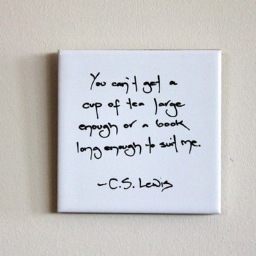 You can't get a
cup of tea large
enough or a book
long enough to suit me.
-C.S. Lewis